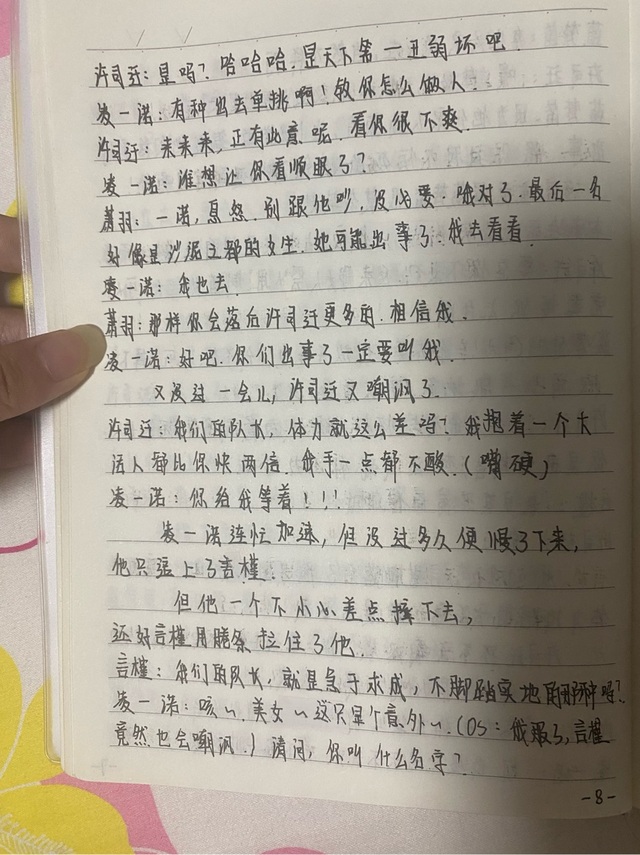 许司迁：是吗？哈哈哈．是天下第一丑弱坏吧．
凌一诺：有种出去单挑啊！教你怎么做人．
许司迁：来来来，正有此意呢．看你很不爽．
凌一诺：谁想让你看顺眼了？
萧羽：一诺，息怒．别跟他吵，没必要．哦对了．最后一名
好像是沙泥之都的女生．她可能出事了．我去看看．
凌一诺：我也去．
萧羽：那样你会落后许司迁更多的．相信我．
凌一诺：好吧．你们出事了一定要叫我．
又没过一会儿，许司迁又嘲讽了．
许司迁：我们的队长，体力就这么差吗？我抱着一个大
活人都比你快两倍．我手一点都不酸．（嘴硬）
凌一诺：你给我等着！！！
凌一诺连忙加速，但没过多久便慢了下来，
他只追上了言槿．
但他一个不小心差点摔下去，
还好言槿用藤条拉住了他．
言槿：我们的队长，就是急于求成，不脚踏实地的那种吗？
凌一诺：咳～．美女～这只是个意外～．（OS：我服了，言槿
竟然也会嘲讽．）请问，你叫什么名字？
-8-